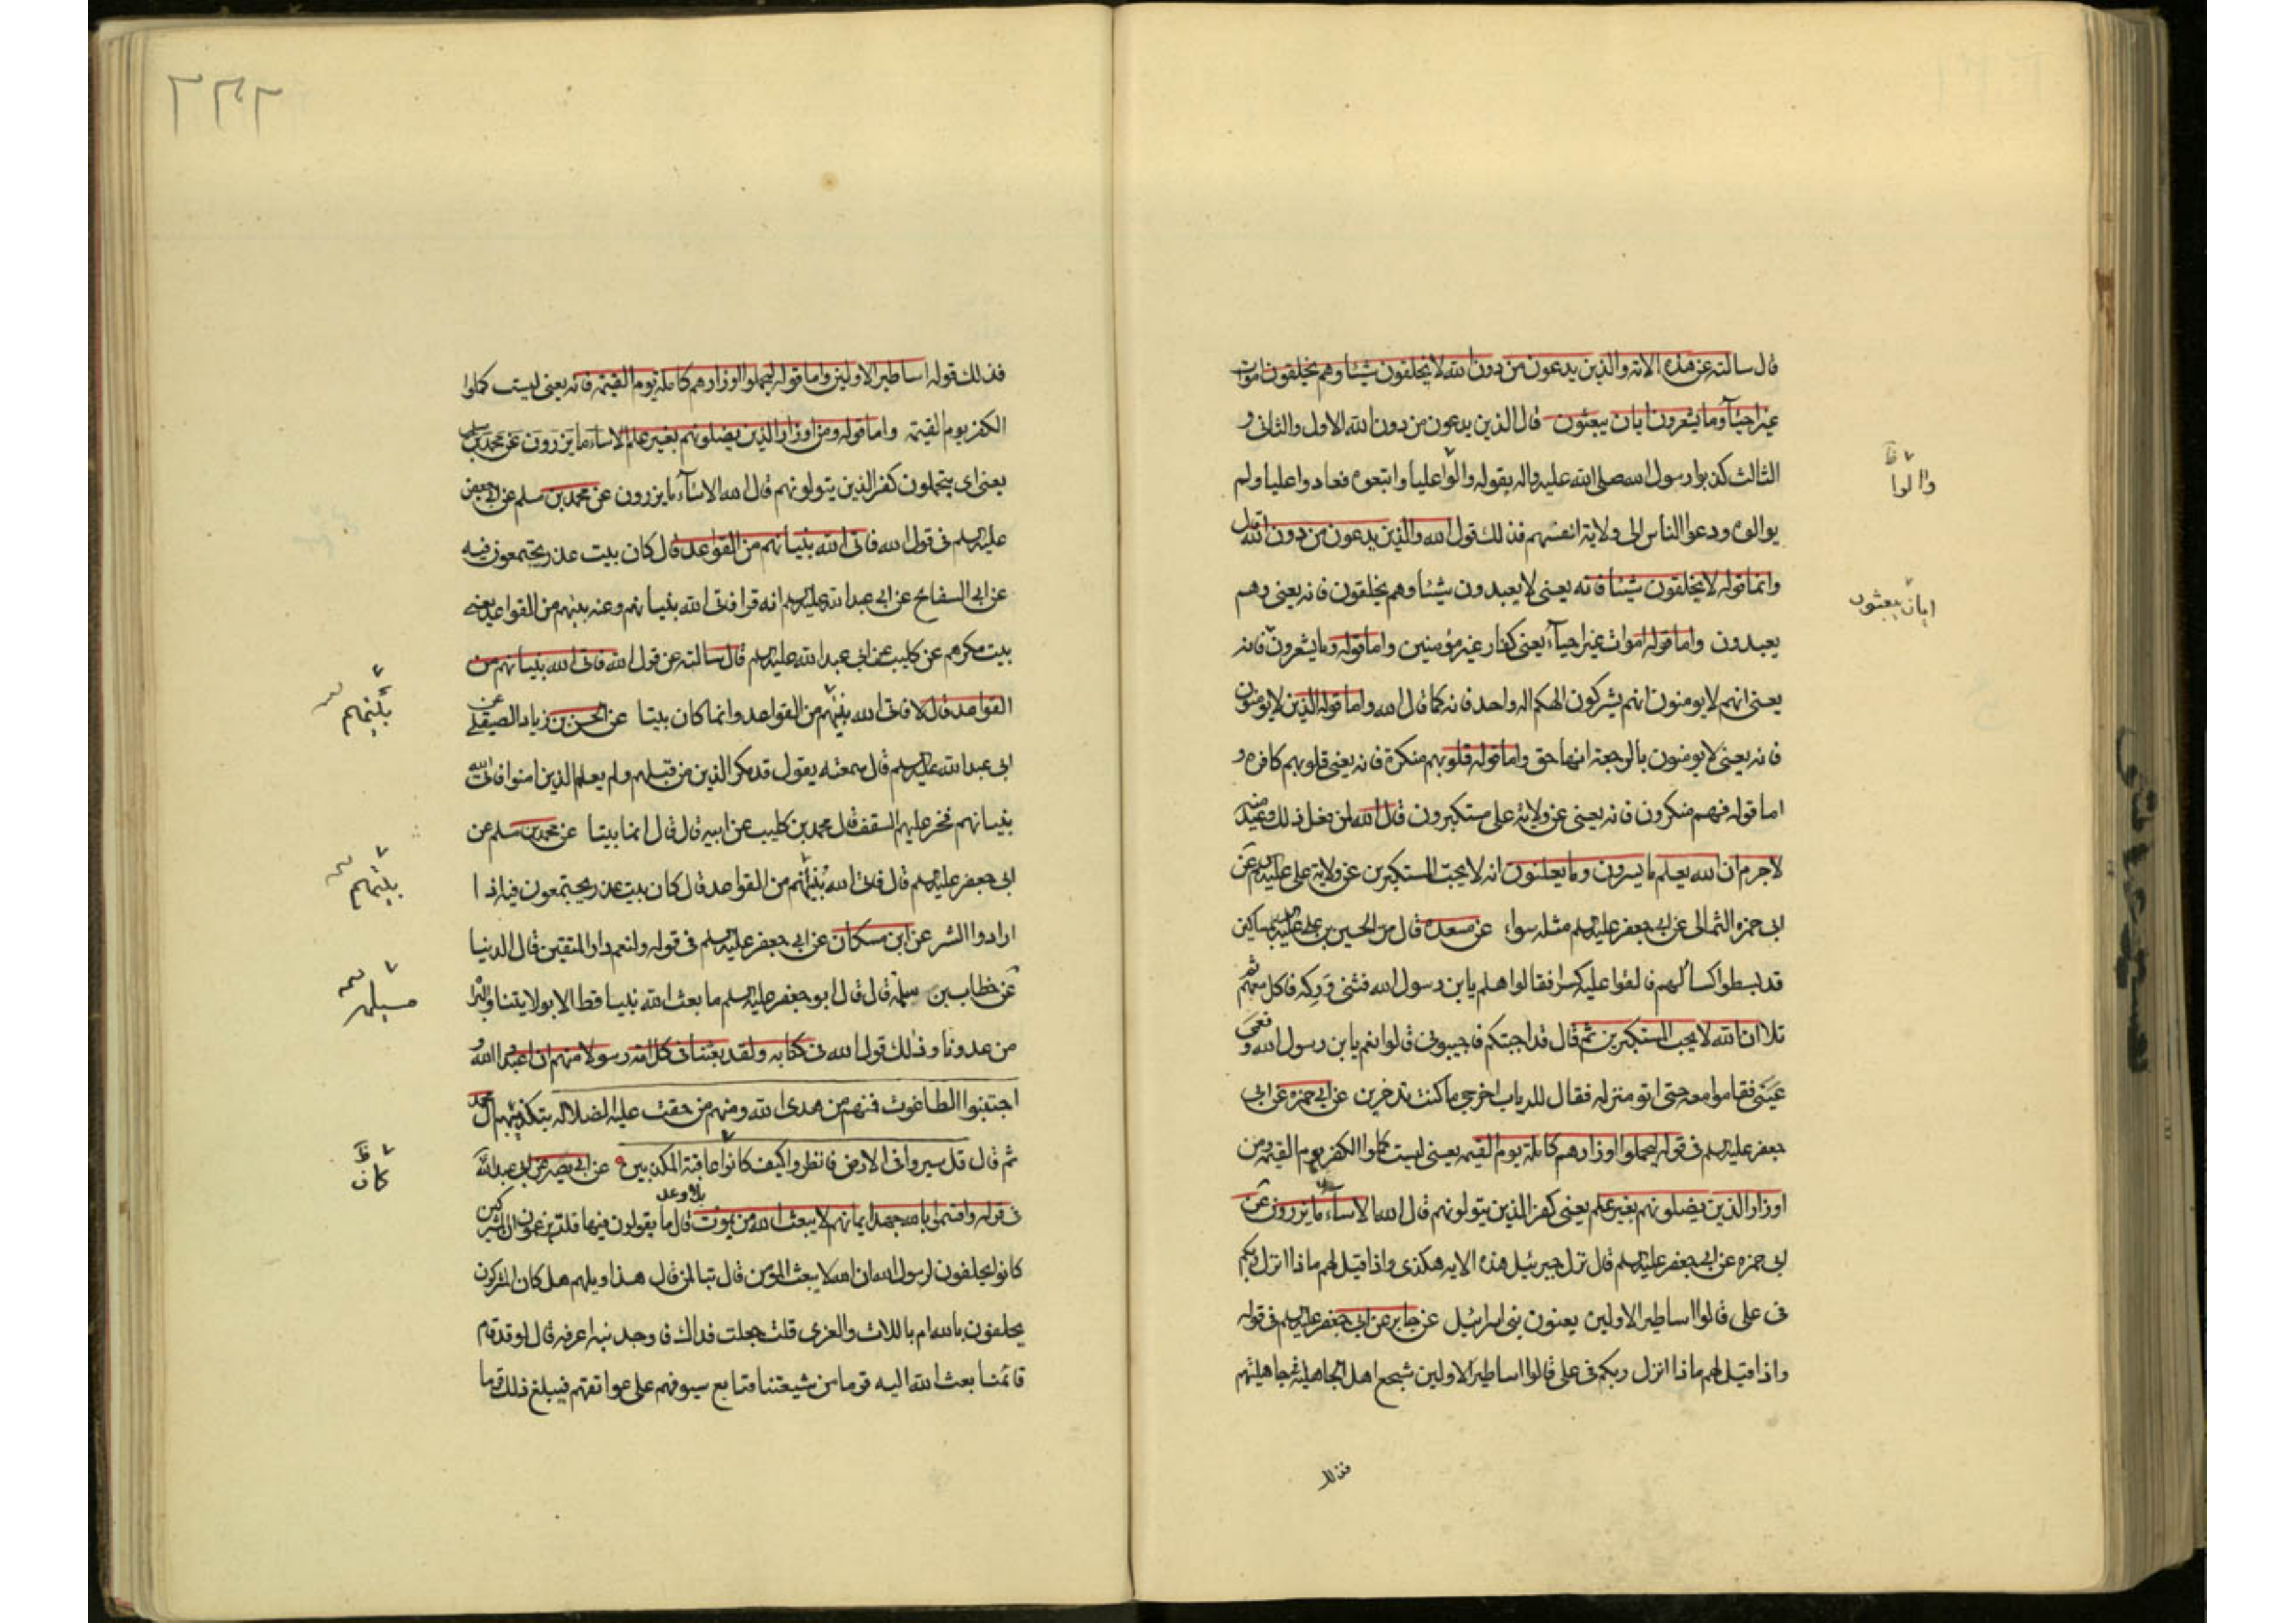 قال سالته عن هذه الاية والذين يدعون من دون الله لا يخلقون شيئا وهم يخلقون اموات
غير احياء وما يشعرون ايان يبعثون قال الذين يدعون من دون الله الاول والثانى و
الثالث كذبوا رسول الله صلى الله عليه واله بقوله والوا عليا واتبعوه فعادوا عليا ولم
يوالوه ودعوا الناس الى ولاية انفسهم فذلك قول الله والذين يدعون من دون الله قال
واما قوله لا يخلقون شيئا فانه يعنى لا يعبدون شيئا وهم يخلقون فانه يعنى وهم
يعبدون واما قوله اموات غير احياء يعنى كفار غير مؤمنين واما قوله وما يشعرون فانه
يعنى انهم لا يومنون انهم يشركون الهكم اله واحد فانه كما قال الله واما قوله الذين لا يومنون
فانه يعنى لا يومنون بالرجعة انها حق واما قوله قلوبهم منكرة فانه يعنى قلوبهم كافره و
اما قوله فهم منكرون فانه يعنى عن ولاية على مستكبرون قال الله لمن فعل ذلك وعيدا منه
لاجرم ان الله يعلم ما يسرون وما يعلنون انه لا يحب المستكبرين عن ولاية على عليه عن
ابى حمزه الثمالى عن ابى جعفر عليه مثله سواء عن مسعده قال مر الحسين بن على عليه بمساكين
قد بسطوا كساء لهم فالقوا عليه كسرا فقالوا هلم يا بن رسول الله فثنى وركه فاكل معهم ثم
تلا ان الله لا يحب المستكبرين ثم قال قد اجبتكم فاجيبونى قالوا نعم يا بن رسول الله و
عينى فقاموا معه حتى اتو منزله فقال للرباب اخرجى ما كنت تدخرين عن ابى حمزه عن ابى
جعفر عليه فى قوله ليحملوا اوزارهم كاملة يوم القيمه يعنى ليستكملوا الكفر يوم القيمه ومن
اوزار الذين يضلونهم بغير علم يعنى كفر الذين يتولونهم قال الله الا ساء ما يزرون عن
ابى حمزه عن ابى جعفر عليه قال نزل جبرئيل هذه الايه هكذى واذا قيل لهم ماذا انزل ربكم
فى على قالوا اساطير الاولين يعنون بنى اسرائيل عن جابر عن ابى جعفر عليه فى قوله
واذا قيل لهم ماذا انزل ربكم فى على قالوا اساطير الاولين شجع اهل الجاهلية جاهليتهم
فذلك
والوا
ايان يبعثون
٢٣٢
فذلك قوله اساطير الاولين واما قوله ليحملوا اوزارهم كاملة يوم القيمه فانه يعنى ليستكملوا
الكفر يوم القيمه واما قوله ومن اوزار الذين يضلونهم بغير علم الا ساء ما يزرون عن محمد بن مسلم
يعنى اى يتحملون كفر الذين يتولونهم قال الله الا ساء ما يزرون عن محمد بن مسلم عن ابى جعفر
عليه فى قول الله فاتى الله بنيانهم من القواعد قال كان بيت غدر يجتمعون فيه
عن ابى السفاتج عن ابى عبد الله عليه انه قرا فاتى الله بنيانهم وعنه بيتهم من القواعد يعنى
بيت مكرهم عن كليب عن ابى عبد الله عليه قال سالته عن قول الله فاتى الله بنيانهم من
القواعد قال لا فاتى الله بيتهم من القواعد وانما كان بيتا عن الحسن بن زياد الصيقل عن
ابى عبد الله عليه قال سمعته يقول قد مكر الذين من قبلهم ولم يعلم الذين امنوا فاتى الله
بنيانهم فخر عليهم السقف قال محمد بن كليب عن ابيه قال قال انما بيتا عن محمد بن مسلم عن
ابى جعفر عليه قال فاتى الله بنيانهم من القواعد قال كان بيت غدر يجتمعون فيه اذا
ارادوا الشر عن ابن مسكان عن ابى جعفر عليه فى قوله ولنعم دار المتقين قال الدنيا
عن خطاب بن مسلمة قال قال ابو جعفر عليه ما بعث الله نبيا قط الا بولايتنا والبراءة
من عدونا وذلك قول الله فى كتابه ولقد بعثنا فى كل امة رسولا منهم ان اعبدوا الله و
اجتنبوا الطاغوت فمنهم من هدى الله ومنهم من حقت عليه الضلاله بتكذيبهم ال محمد
ثم قال قل سيروا فى الارض فانظروا كيف كانوا عاقبة المكذبين عن ابى بصير عن ابى عبد الله
فى قوله واقسموا بالله جهد ايمانهم لا يبعث الله من يموت بلى وعدا قال ما يقولون فيها قلت يزعمون ان المشركين
كانوا يحلفون لرسول الله ان الله لا يبعث الموتى قال تبا لمن قال هذا ويلهم هل كان المشركون
يحلفون بالله ام باللات والعزى قلت جعلت فداك فاوجدنيه اعرفه قال لو قد قام
قائمنا بعث الله اليه قوما من شيعتنا قبايع سيوفهم على عواتقهم فيبلغ ذلك قوما
بيتهم
بيتهم
مسلمة
كان